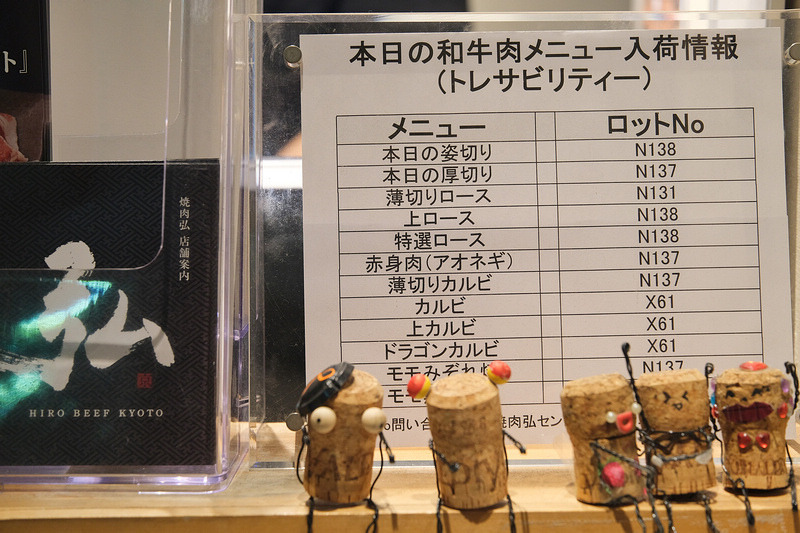 ト』
焼肉弘 店舗案内
弘
HIRO BEEF KYOTO
本日の和牛肉メニュー入荷情報
(トレサビリティー)
メニュー ロットNo
本日の姿切り N138
本日の厚切り N137
薄切りロース N131
上ロース N138
特選ロース N138
赤身肉(アオネギ) N137
薄切りカルビ N137
カルビ X61
上カルビ X61
ドラゴンカルビ X61
モモみぞれ N137
モモ
問い合
焼肉弘セン